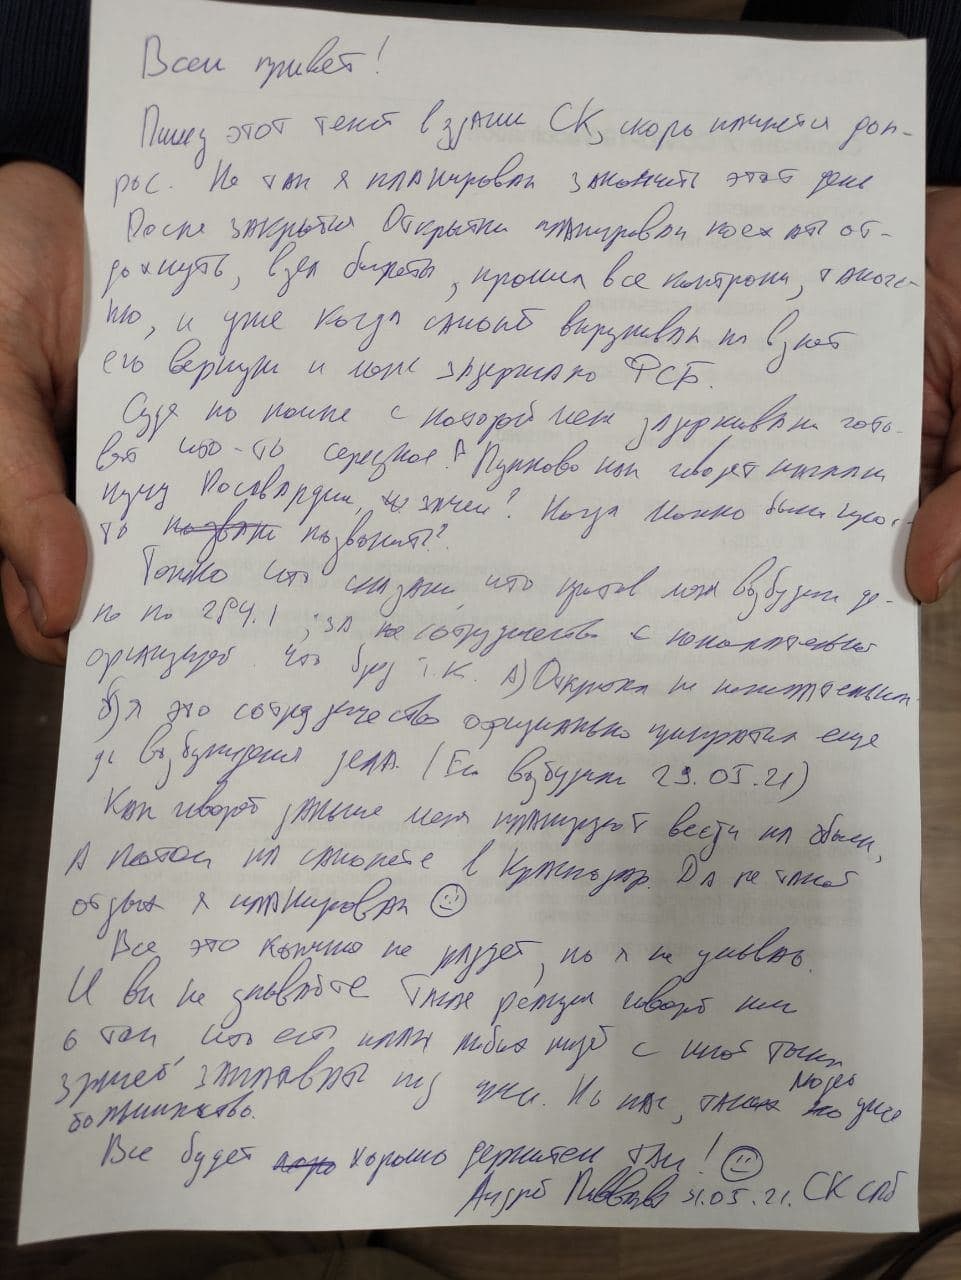 Всем привет!
Пишу этот текст в здании СК, скоро начнется доп-
рос. Не так я планировал закончить этот день
После закрытия Открытки планировал поехать от-
дохнуть, взял билеты, прошел все контроли, таможе-
ню, и уже когда самолет выруливал на взлет
его вернули и меня задержало ФСБ.
Судя по помпе с которой меня задерживали гото-
вят что-то серьезное. А Пулково как говорят нагнали
кучу Росгвардии, зачем? Когда можно было прос-
то позвонить?
Только что сказали, что против меня возбудили де-
ло по 284.1, за сотрудничество с нежелательной
организацией. Что бред т.к. А) Открытка не нежелательная
б) я это сотрудничество официально прекратил еще
до возбуждения дела. (Его возбудили 29.05.21)
Как говорят дальше меня планируют вести на обыск,
А потом на самолете в Краснодар. Да не такой
отдых я планировал
Все это конечно не радует, но я не унываю.
И вы не унывайте Такая реакция говорит нам
о том что есть план любых людей с иной точкой
зрения заплавать под . Но нас, таких людей уже
большинство.
Все будет хорошо держитесь там!
Андрей Пивоваров 31.05.21. СК СПб